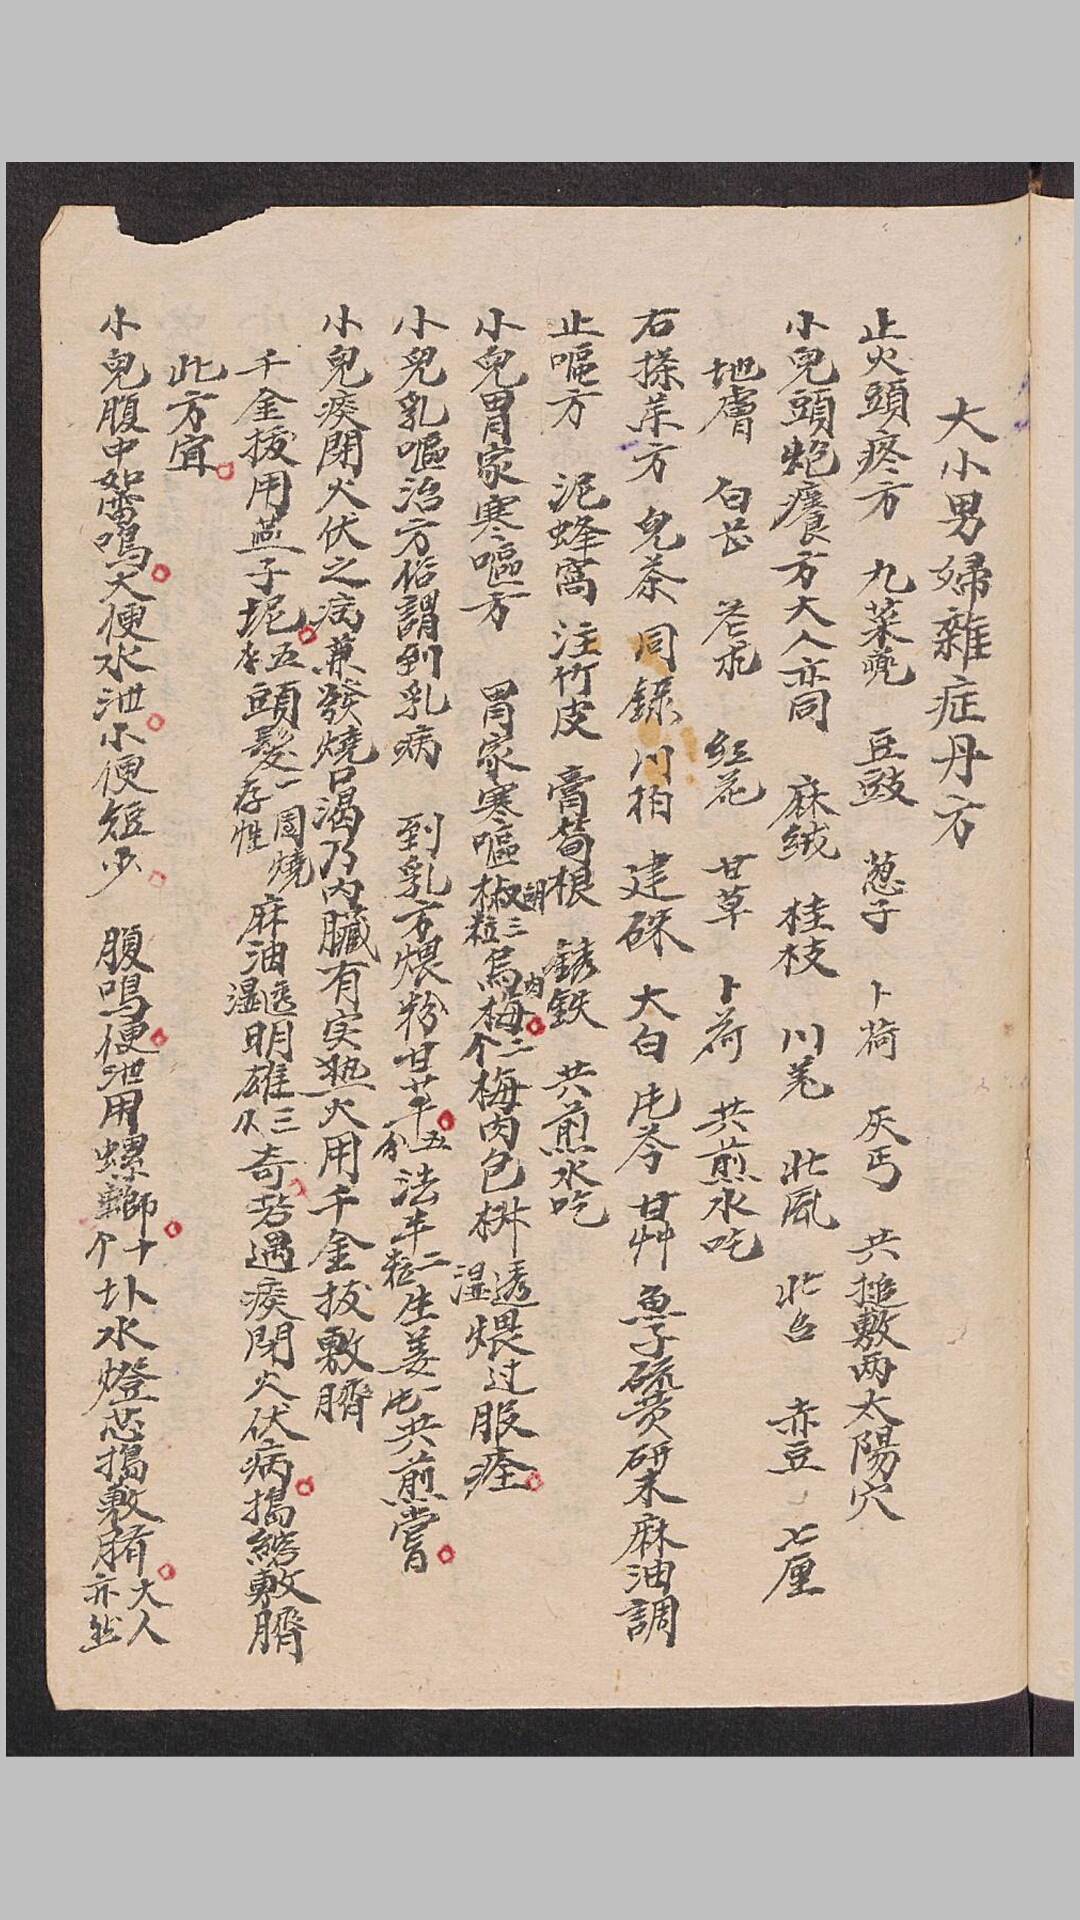 大小男婦雜症丹方
止火頭疼方 九菜蔸 豆豉 葱子 卜荷 灰丐 共搥敷两太陽穴
小兒頭炮癢方大人亦同 麻絨 桂枝 川羌 北風 赤豆 七厘
地膚 白芷 红花 甘草 卜荷 共煎水吃
右搽茱方 兒茶 同録 川柏 建硃 大白 芩 甘艸 魚子硫黄研末麻油調
止嘔方 泥蜂窩 注竹皮 膏荀根 銹鉄 共煎水吃
小兒胃家寒嘔方 胃家寒嘔胡椒三粒烏梅肉二个梅肉包椒湿透煨过服痊
小兒乳嘔治方俗謂到乳病 到乳方煨粉甘草五分法半二粒生姜一屯共煎嘗
小兒痰閉火伏之病兼發燒口渴乃内臟有实熱火用千金拔敷臍
千金拔用燕子坭五頭髮一周燒存性麻油湿透明雄三奇若遇痰閉火伏病搗綣敷臍
此方宜
小兒腹中如雷鳴大便水泄小便短少 腹鳴便泄用螺螄十个圤水燈芯搗敷大人亦然